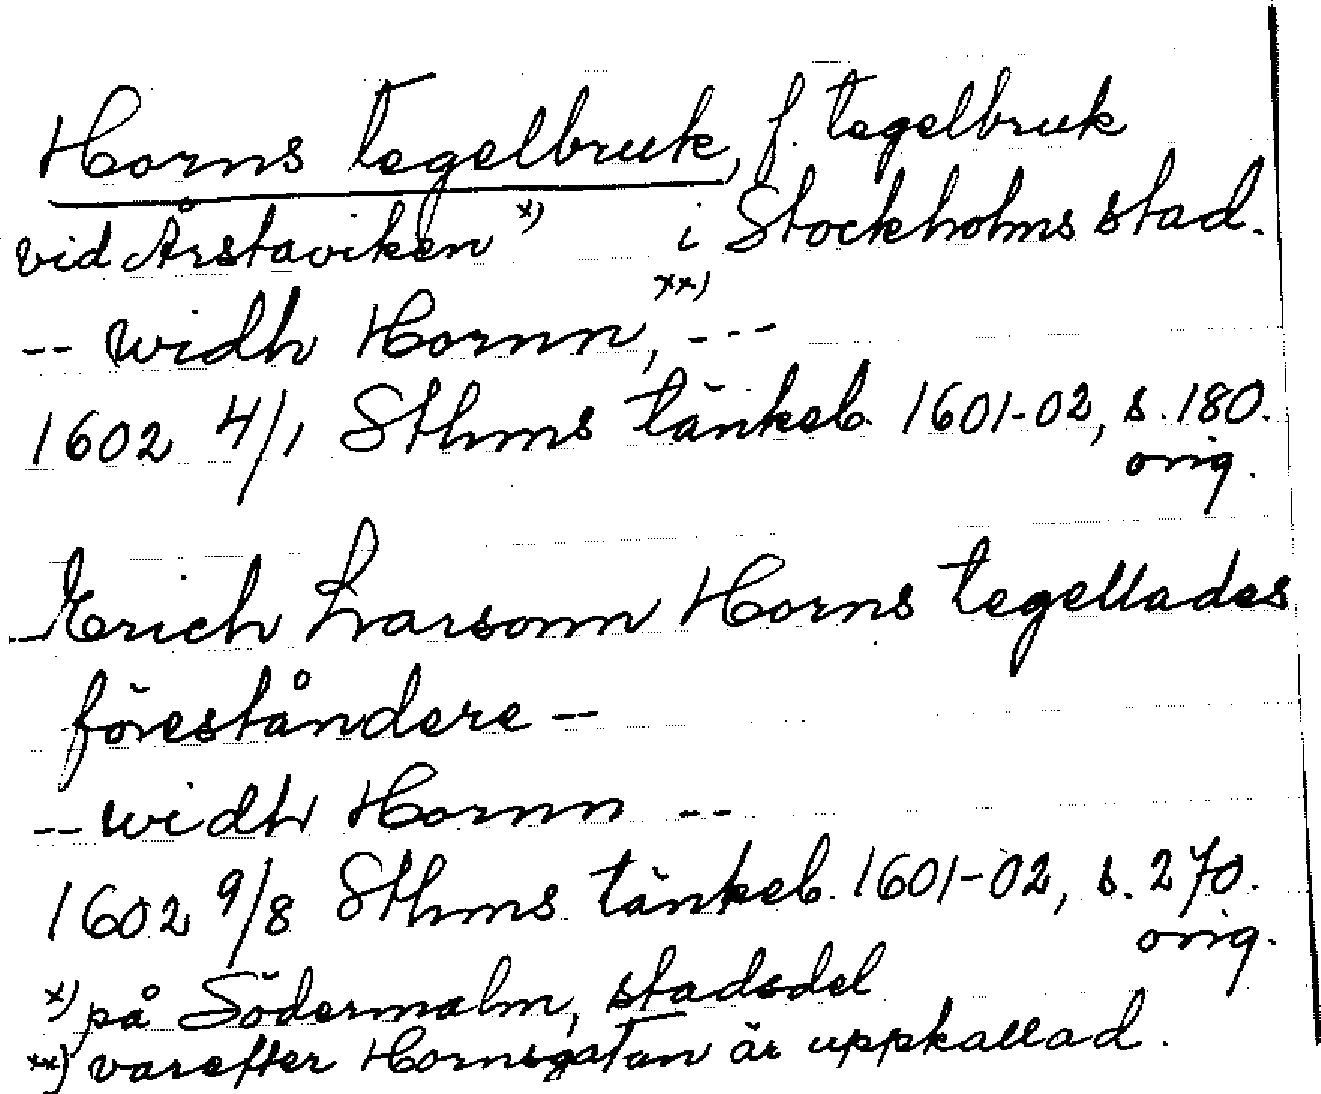 Horns tegelbruk, f. tegelbruk
vid Årstaviken x) i Stockholms stad.
-- widh Hornn, xx) ---
1602 4/1 Sthms tänkeb. 1601-02, s. 180.
orig.
Erich Larsonn Horns tegellades
föreståndere --
-- widh Hornn --
1602 9/8 Sthms tänkeb. 1601-02, s. 270.
orig.
x) på Södermalm, stadsdel
xx) varefter Hornsgatan är uppkallad.